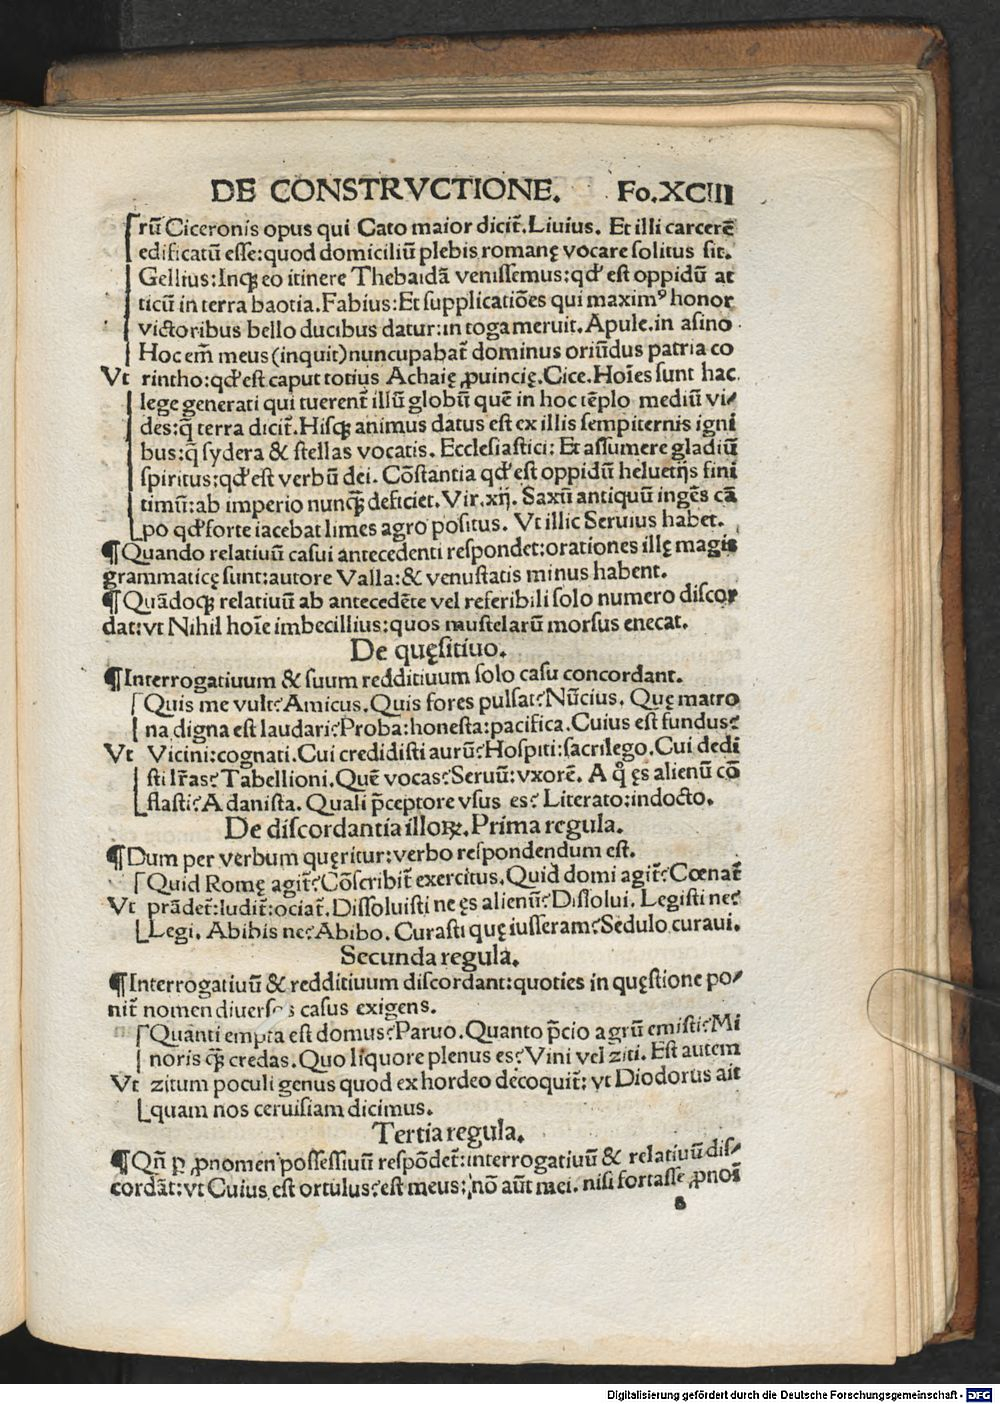 DE CONSTRVCTIONE. Fo.XCIII
rū Ciceronis opus qui Cato maior dicit̃. Liuius. Et illi carcerē
edificatū esse: quod domiciliū plebis romanę vocare solitus sit.
Gellius: Inqꝫ eo itinere Thebaidā venissemus: qđ est oppidū at
ticū in terra baotia. Fabius: Et supplicatiões qui maximꝰ honor
victoribus bello ducibus datur: in toga meruit. Apule. in asino
Hoc em̃ meus (inquit) nuncupabat̃ dominus oriūdus patria co
Vt rintho: qđ est caput totius Achaię ꝓuincię. Cice. Hoĩes sunt hac
lege generati qui tuerent̃ illū globū quē in hoc tēplo mediū vi⸗
des: q̄ terra dicit̃. Hisqꝫ animus datus est ex illis sempiternis igni
bus: q̄ sydera & stellas vocatis. Ecclesiastici: Et assumere gladiū
spiritus: qđ est verbū dei. Cōstantia qđ est oppidū heluetijs fini
timū: ab imperio nunqꝫ̃ deficiet. Vir. xij. Saxū antiquū ingēs cā
po qđ forte iacebat limes agro positus. Vt illic Seruius habet.
¶ Quando relatiuū casui antecedenti respondet: orationes illę magis
grammaticę sunt: autore Valla: & venustatis minus habent.
¶ Quādoqꝫ relatiuū ab antecedēte vel referibili solo numero discor
dat: vt Nihil hoĩe imbecillius: quos mustelarū morsus enecat.
De quęsitiuo.
¶ Interrogatiuum & suum redditiuum solo casu concordant.
Quis me vult? Amicus. Quis fores pulsat? Nūcius. Quę matro
na digna est laudari? Proba: honesta: pacifica. Cuius est fundus?
Vt Vicini: cognati. Cui credidisti aurū? Hospiti: sacrilego. Cui dedi
sti lr̃as? Tabellioni. Quē vocas? Seruū: vxorē. A qͦ ęs alienū cō
flasti? A danista. Quali p̄ceptore vsus es? Literato: indocto.
De discordantia illoꝝ. Prima regula.
¶ Dum per verbum quęritur: verbo respondendum est.
Quid Romę agit̃? Cōscribit̃ exercitus. Quid domi agit̃? Cœnat̃
Vt prādet̃: ludit̃: ociat̃. Dissoluisti ne ęs alienū? Dissolui. Legisti ne?
Legi. Abibis ne? Abibo. Curasti quę iusseram? Sedulo curaui.
Secunda regula.
¶ Interrogatiuū & redditiuum discordant: quoties in quęstione po⸗
nit̃ nomen casus exigens.
Quanti empta est domus? Paruo. Quanto p̄cio agrū emisti? Mi
noris qꝫ̃ credas. Quo liquore plenus es? Vini vel ziti. Est autem
Vt zitum poculi genus quod ex hordeo decoquit̃: vt Diodorus ait
quam nos ceruisiam dicimus.
Tertia regula.
¶ Qñ ꝑ ꝓnomen possessiuū respōdet̃: interrogatiuū & relatiuū dis⸗
cordāt: vt Cuius est ortulus? est meus: nō aūt mei. nisi fortasse ꝓnoĩ
Digitalisierung gefördert durch die Deutsche Forschungsgemeinschaft - DFG